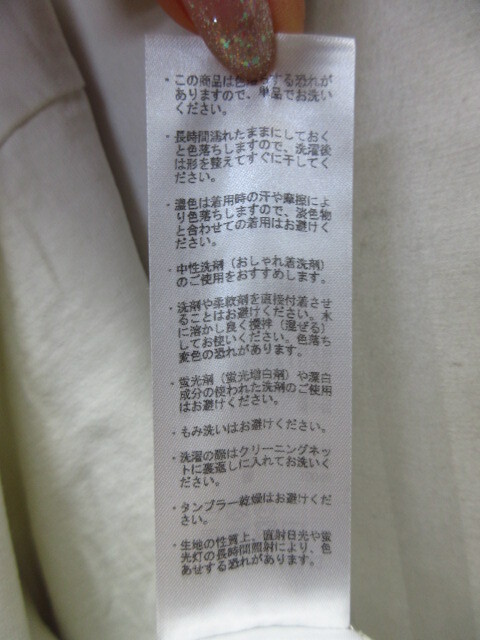 ・この商品は色落ちする恐れが
ありますので、単品でお洗い
ください。
・長時間濡れたままにしておく
と色落ちしますので、洗濯後
は形を整えてすぐに干してく
ださい。
・濃色は着用時の汗や摩擦によ
り色落ちしますので、淡色物
と合わせての着用はお避けく
ださい。
・中性洗剤（おしゃれ着洗剤）
のご使用をおすすめします。
・洗剤や柔軟剤を直接付着させ
ることはお避けください。水
に溶かし良く攪拌（混ぜる）
してお使いください。色落ち
変色の恐れがあります。
・蛍光剤（蛍光増白剤）や漂白
成分の使われた洗剤のご使用
はお避けください。
・もみ洗いはお避けください。
・洗濯の際はクリーニングネッ
トに裏返しに入れてお洗いく
ださい。
・タンブラー乾燥はお避けくだ
さい。
・生地の性質上、直射日光や蛍
光灯の長時間照射により、色
あせする恐れがあります。